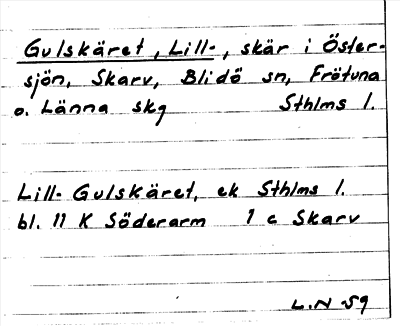 Gulskäret, Lill-, skär i Öster-
sjön, Skarv, Blidö sn, Frötuna
o. Länna skg Sthlms l.
Lill- Gulskäret, ek Sthlms l.
bl. 11 K Söderarm 1 c Skarv
L.N 59